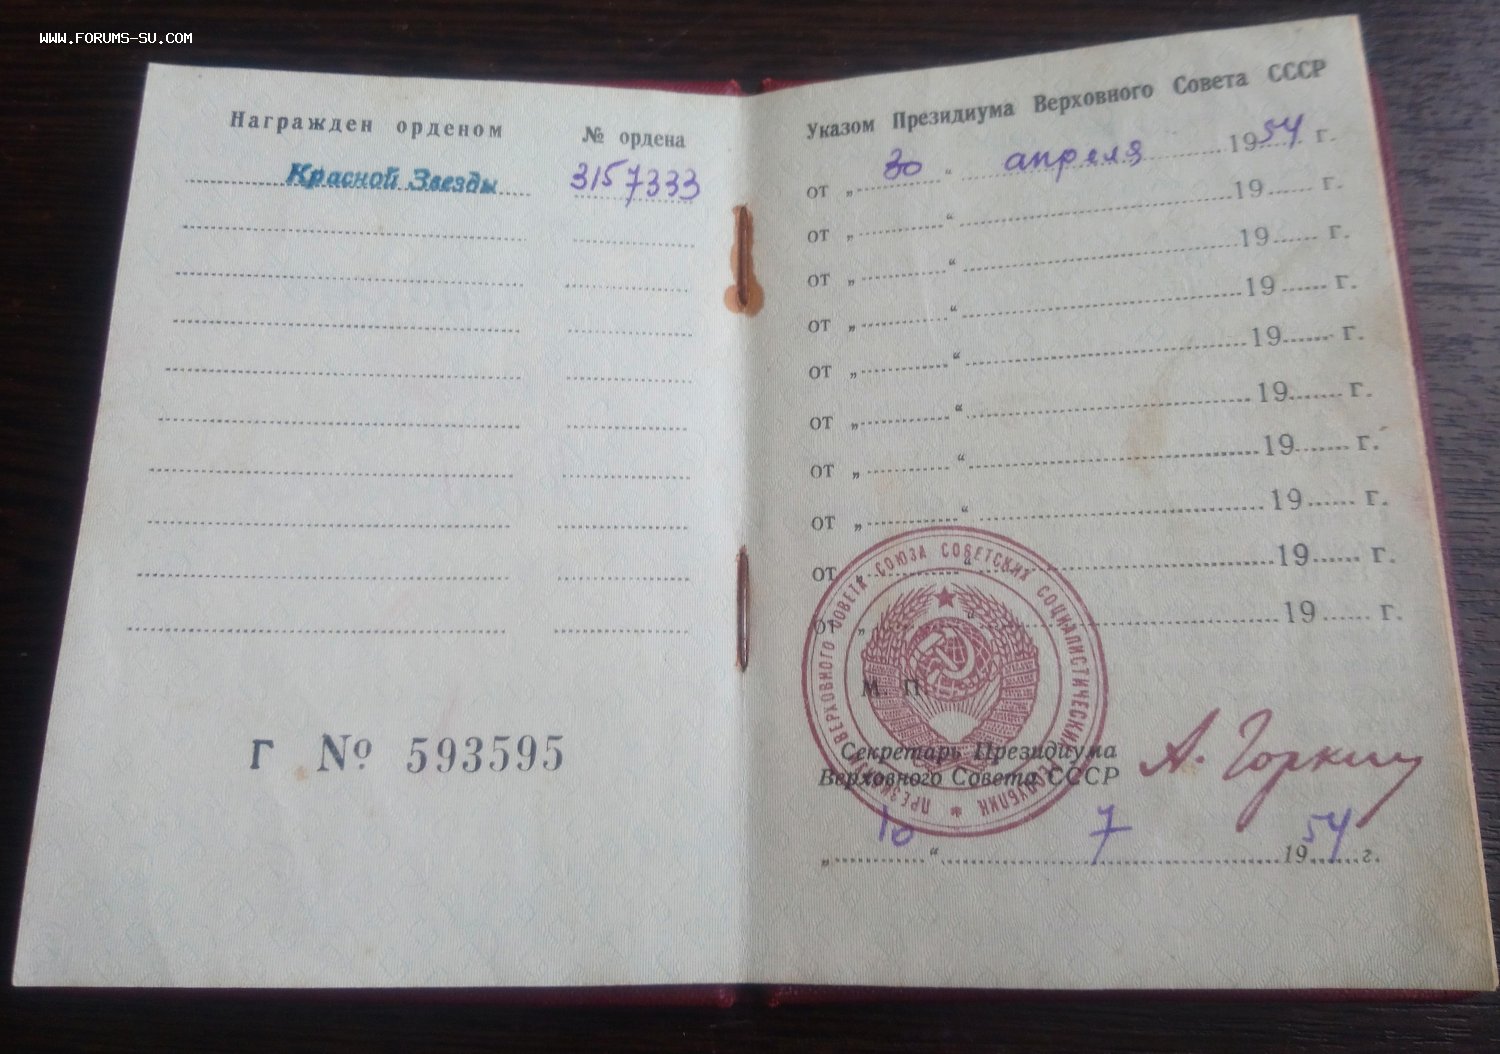 WWW.FORUMS-SU.COM
Награжден орденом № ордена
Красной Звезды 3157333
Г № 593595
Указом Президиума Верховного Совета СССР
от „30“ апреля 1954 г.
от „ “ 19 г.
от „ “ 19 г.
от „ “ 19 г.
от „ “ 19 г.
от „ “ 19 г.
от „ “ 19 г.
от „ “ 19 г.
от „ “ 19 г.
от „ “ 19 г.
М. П.
ПРЕЗИДИУМ ВЕРХОВНОГО СОВЕТА СОЮЗА СОВЕТСКИХ СОЦИАЛИСТИЧЕСКИХ РЕСПУБЛИК
Секретарь Президиума
Верховного Совета СССР А. Горкин
„10“ 7 1954 г.